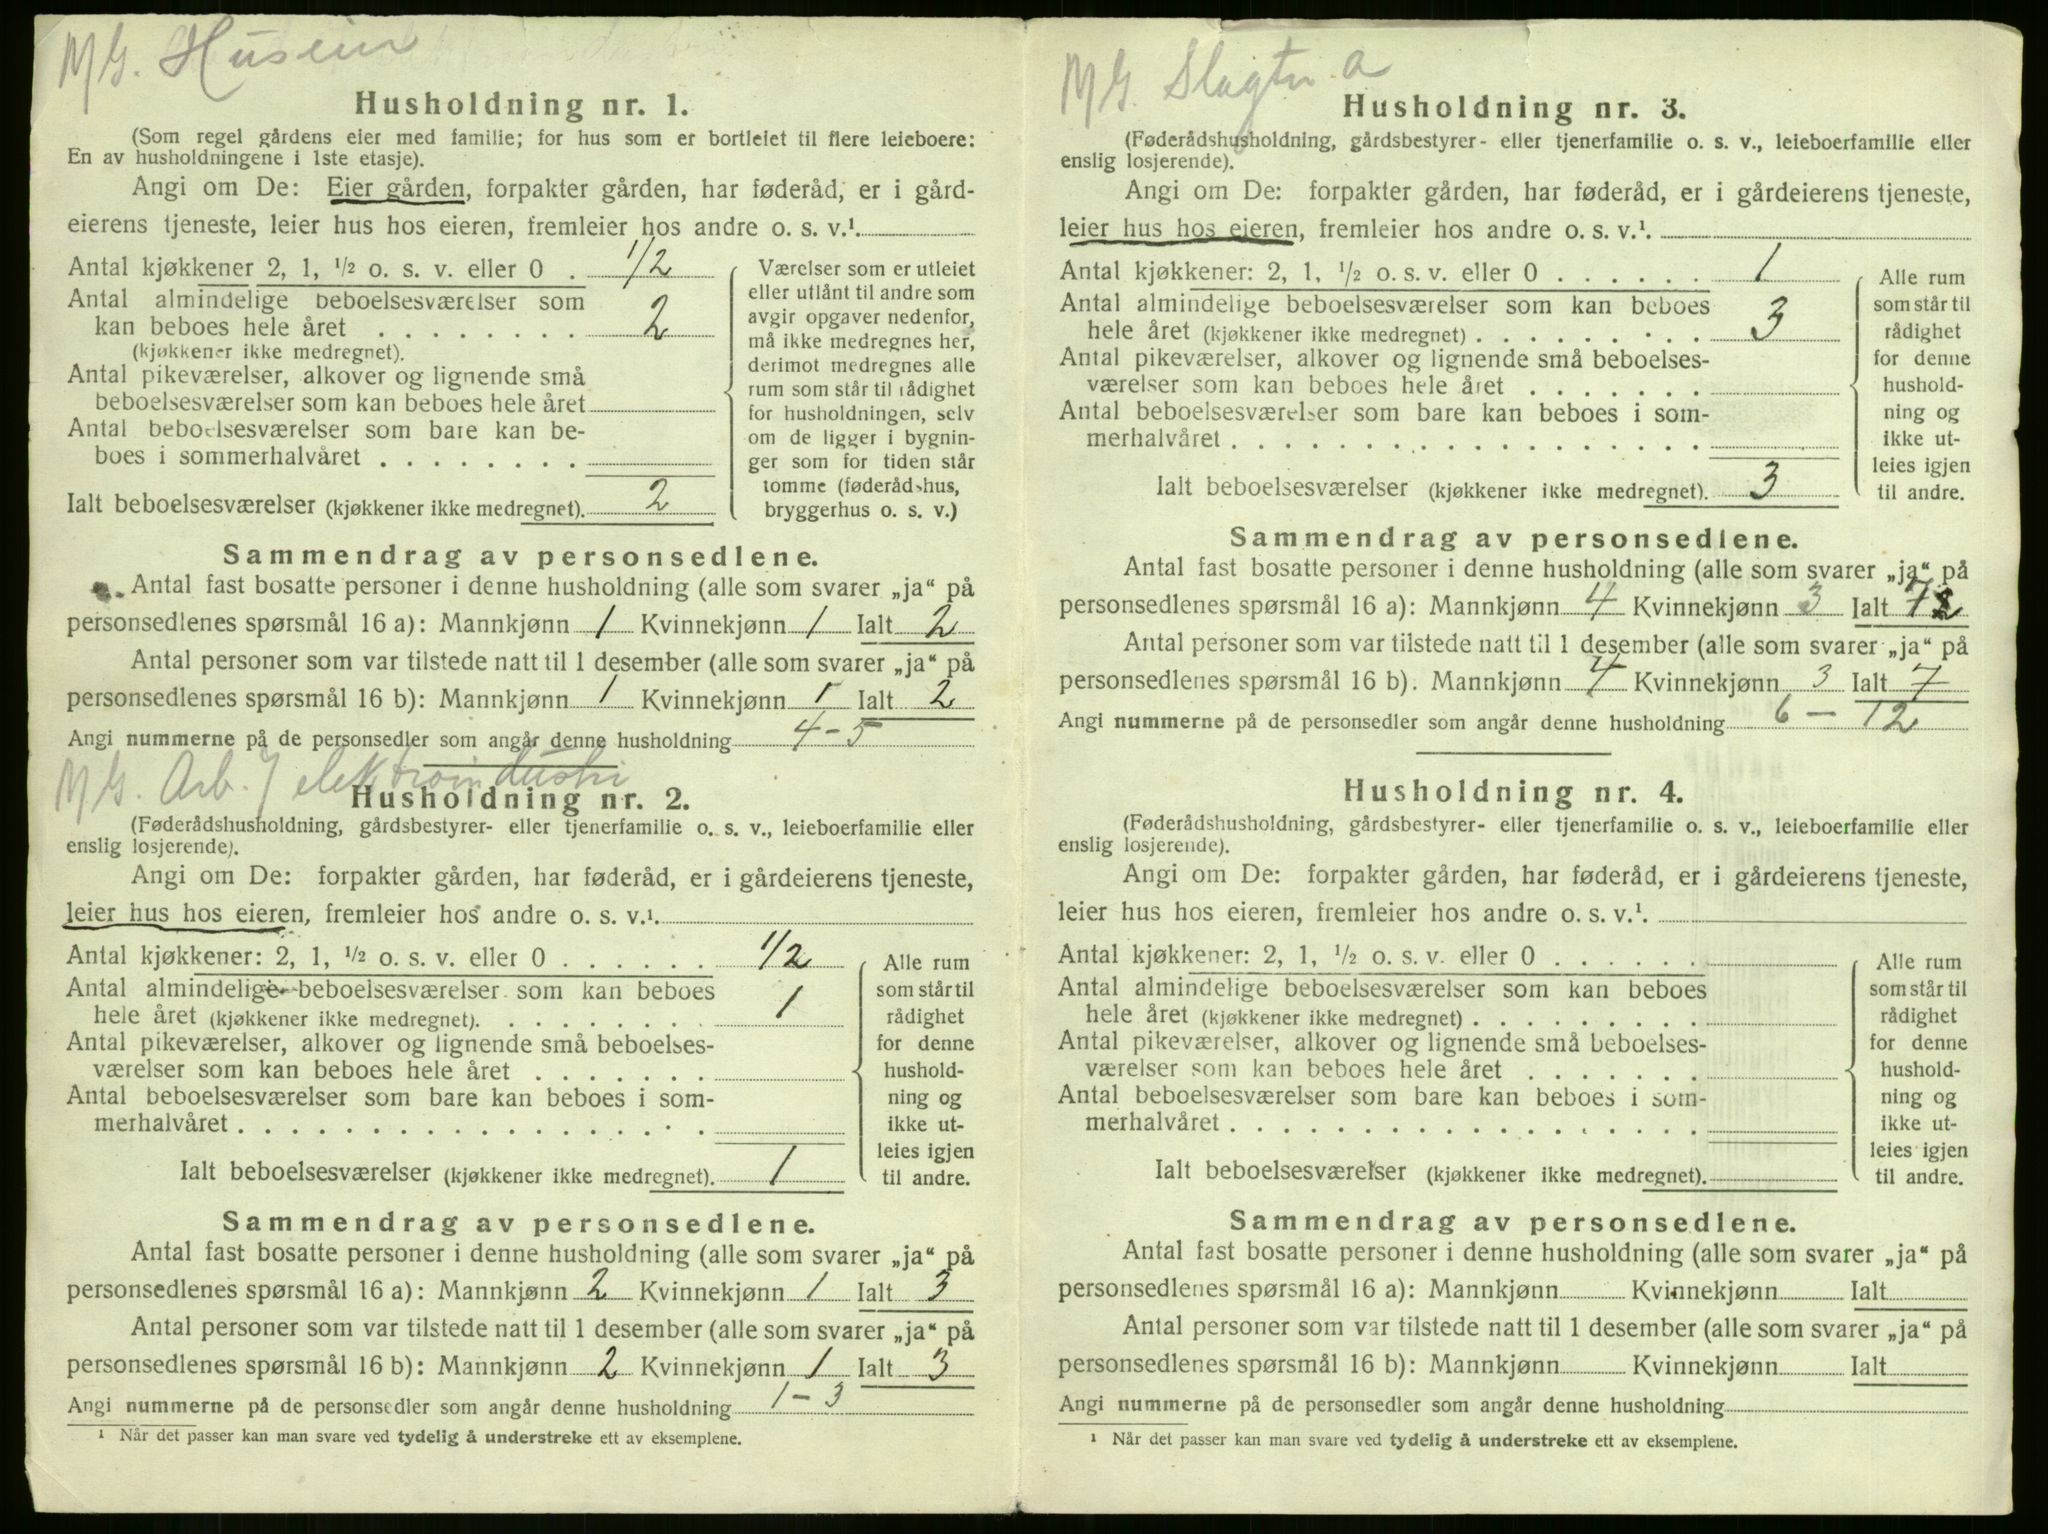 M G. Huseier
Husholdning nr. 1.
(Som regel gårdens eier med familie; for hus som er bortleiet til flere leieboere:
En av husholdningene i 1ste etasje).
Angi om De: Eier gården, forpakter gården, har føderåd, er i gård-
eierens tjeneste, leier hus hos eieren, fremleier hos andre o. s. v.¹.
Antal kjøkkener 2, 1, ½ o. s. v. eller 0 . 1/2
Antal almindelige beboelsesværelser som
kan beboes hele året . . . . . . . . 2
(kjøkkener ikke medregnet).
Antal pikeværelser, alkover og lignende små
beboelsesværelser som kan beboes hele året
Antal beboelsesværelser som bare kan be-
boes i sommerhalvåret . . . . . . . .
Ialt beboelsesværelser (kjøkkener ikke medregnet). 2
Værelser som er utleiet
eller utlånt til andre som
avgir opgaver nedenfor,
må ikke medregnes her,
derimot medregnes alle
rum som står til rådighet
for husholdningen, selv
om de ligger i bygnin-
ger som for tiden står
tomme (føderådshus,
bryggerhus o. s. v.)
Sammendrag av personsedlene.
Antal fast bosatte personer i denne husholdning (alle som svarer „ja“ på
personsedlenes spørsmål 16 a): Mannkjønn 1 Kvinnekjønn 1 Ialt 2
Antal personer som var tilstede natt til 1 desember (alle som svarer „ja“ på
personsedlenes spørsmål 16 b): Mannkjønn 1 Kvinnekjønn 1 Ialt 2
Angi nummerne på de personsedler som angår denne husholdning 4 - 5
M G. Arb. i elektroindustri
Husholdning nr. 2.
(Føderådshusholdning, gårdsbestyrer- eller tjenerfamilie o. s. v., leieboerfamilie eller
enslig losjerende).
Angi om De: forpakter gården, har føderåd, er i gårdeierens tjeneste,
leier hus hos eieren, fremleier hos andre o. s. v.¹.
Antal kjøkkener: 2, 1, ½ o. s. v. eller 0 . . . . . . 1/2
Antal almindelige beboelsesværelser som kan beboes
hele året (kjøkkener ikke medregnet). . . . . . . . . 1
Antal pikeværelser, alkover og lignende små beboelses-
værelser som kan beboes hele året . . . . . . .
Antal beboelsesværelser som bare kan beboes i som-
merhalvåret . . . . . . . . . . . . . . . . . .
Ialt beboelsesværelser (kjøkkener ikke medregnet). 1
Alle rum
som står til
rådighet
for denne
hushold-
ning og
ikke ut-
leies igjen
til andre.
Sammendrag av personsedlene.
Antal fast bosatte personer i denne husholdning (alle som svarer „ja“ på
personsedlenes spørsmål 16 a): Mannkjønn 2 Kvinnekjønn 1 Ialt 3
Antal personer som var tilstede natt til 1 desember (alle som svarer „ja“ på
personsedlenes spørsmål 16 b): Mannkjønn 2 Kvinnekjønn 1 Ialt 3
Angi nummerne på de personsedler som angår denne husholdning 1 - 3
¹ Når det passer kan man svare ved tydelig å understreke ett av eksemplene.
M G. Slagter a
Husholdning nr. 3.
(Føderådshusholdning, gårdsbestyrer- eller tjenerfamilie o. s. v., leieboerfamilie eller
enslig losjerende).
Angi om De: forpakter gården, har føderåd, er i gårdeierens tjeneste,
leier hus hos eieren, fremleier hos andre o. s. v.¹.
Antal kjøkkener: 2, 1, ½ o. s. v. eller 0 . . . . . . 1
Antal almindelige beboelsesværelser som kan beboes
hele året (kjøkkener ikke medregnet) . . . . . . . . . 3
Antal pikeværelser, alkover og lignende små beboelses-
værelser som kan beboes hele året . . . . . . .
Antal beboelsesværelser som bare kan beboes i som-
merhalvåret . . . . . . . . . . . . . . . . . .
Ialt beboelsesværelser (kjøkkener ikke medregnet). 3
Alle rum
som står til
rådighet
for denne
hushold-
ning og
ikke ut-
leies igjen
til andre.
Sammendrag av personsedlene.
Antal fast bosatte personer i denne husholdning (alle som svarer „ja“ på
personsedlenes spørsmål 16 a): Mannkjønn 4 Kvinnekjønn 3 Ialt 7
Antal personer som var tilstede natt til 1 desember (alle som svarer „ja“ på
personsedlenes spørsmål 16 b). Mannkjønn 4 Kvinnekjønn 3 Ialt 7
Angi nummerne på de personsedler som angår denne husholdning 6 - 12
Husholdning nr. 4.
(Føderådshusholdning, gårdsbestyrer- eller tjenerfamilie o. s. v., leieboerfamilie eller
enslig losjerende).
Angi om De: forpakter gården, har føderåd, er i gårdeierens tjeneste,
leier hus hos eieren, fremleier hos andre o. s. v.¹.
Antal kjøkkener: 2, 1, ½ o. s. v. eller 0 . . . . . .
Antal almindelige beboelsesværelser som kan beboes
hele året (kjøkkener ikke medregnet) . . . . . . . . .
Antal pikeværelser, alkover og lignende små beboelses-
værelser som kan beboes hele året . . . . . . .
Antal beboelsesværelser som bare kan beboes i som-
merhalvåret . . . . . . . . . . . . . . . . . .
Ialt beboelsesværelser (kjøkkener ikke medregnet).
Alle rum
som står til
rådighet
for denne
hushold-
ning og
ikke ut-
leies igjen
til andre.
Sammendrag av personsedlene.
Antal fast bosatte personer i denne husholdning (alle som svarer „ja“ på
personsedlenes spørsmål 16 a): Mannkjønn Kvinnekjønn Ialt
Antal personer som var tilstede natt til 1 desember (alle som svarer „ja“ på
personsedlenes spørsmål 16 b): Mannkjønn Kvinnekjønn Ialt
Angi nummerne på de personsedler som angår denne husholdning
¹ Når det passer kan man svare ved tydelig å understreke ett av eksemplene.